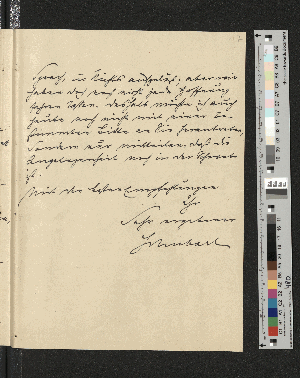 Sprach, in Nichts aufgelöst; aber wir
haben doch noch nicht jede Hoffnung
sehen lassen. Deshalb möchte ich auch
heute noch nicht mit einer be-
stimmten Bitte an Sie herantreten,
sondern nur mitteilen, daß die
Angelegenheit noch in der Schwebe
ist.
Mit den besten Empfehlungen
Ihr
Sehr ergebener